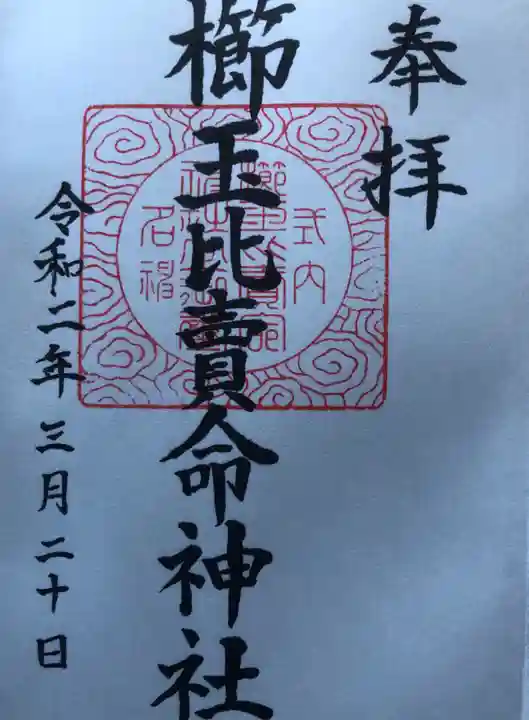 奉拝
櫛玉比賣命神社
式内
名神
令和二年三月二十日